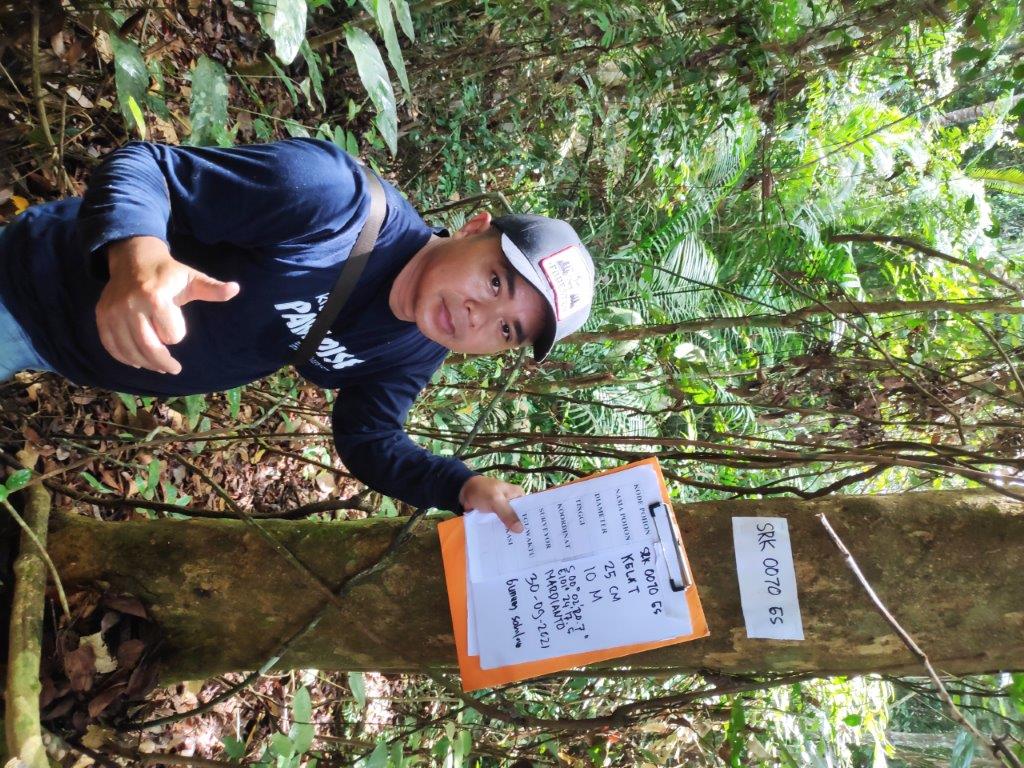 SRK 0070 ES
KODE POHON SRK 0070 ES
NAMA POHON KELAT
DIAMETER 25 CM
TINGGI 10 M
KOORDINAT S 00° 02' 20.7"
SURVEYOR MARDIANTO
TGL-WAKTU 30-09-2021
Gunung